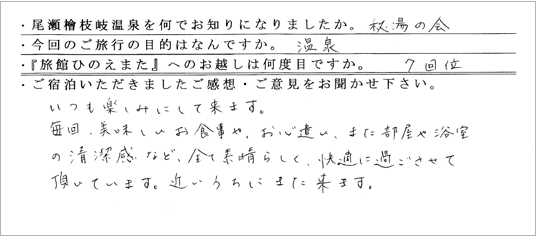 ・尾瀬檜枝岐温泉を何でお知りになりましたか。 秘湯の会
・今回のご旅行の目的はなんですか。 温泉
・『旅館ひのえまた』へのお越しは何度目ですか。 7回位
・ご宿泊いただきましたご感想・ご意見をお聞かせ下さい。
いつも楽しみにして来ます。
毎回、美味しいお食事や、お心遣い、また部屋や浴室
の清潔感など、全て素晴らしく、快適に過ごさせて
頂いています。近いうちにまた来ます。